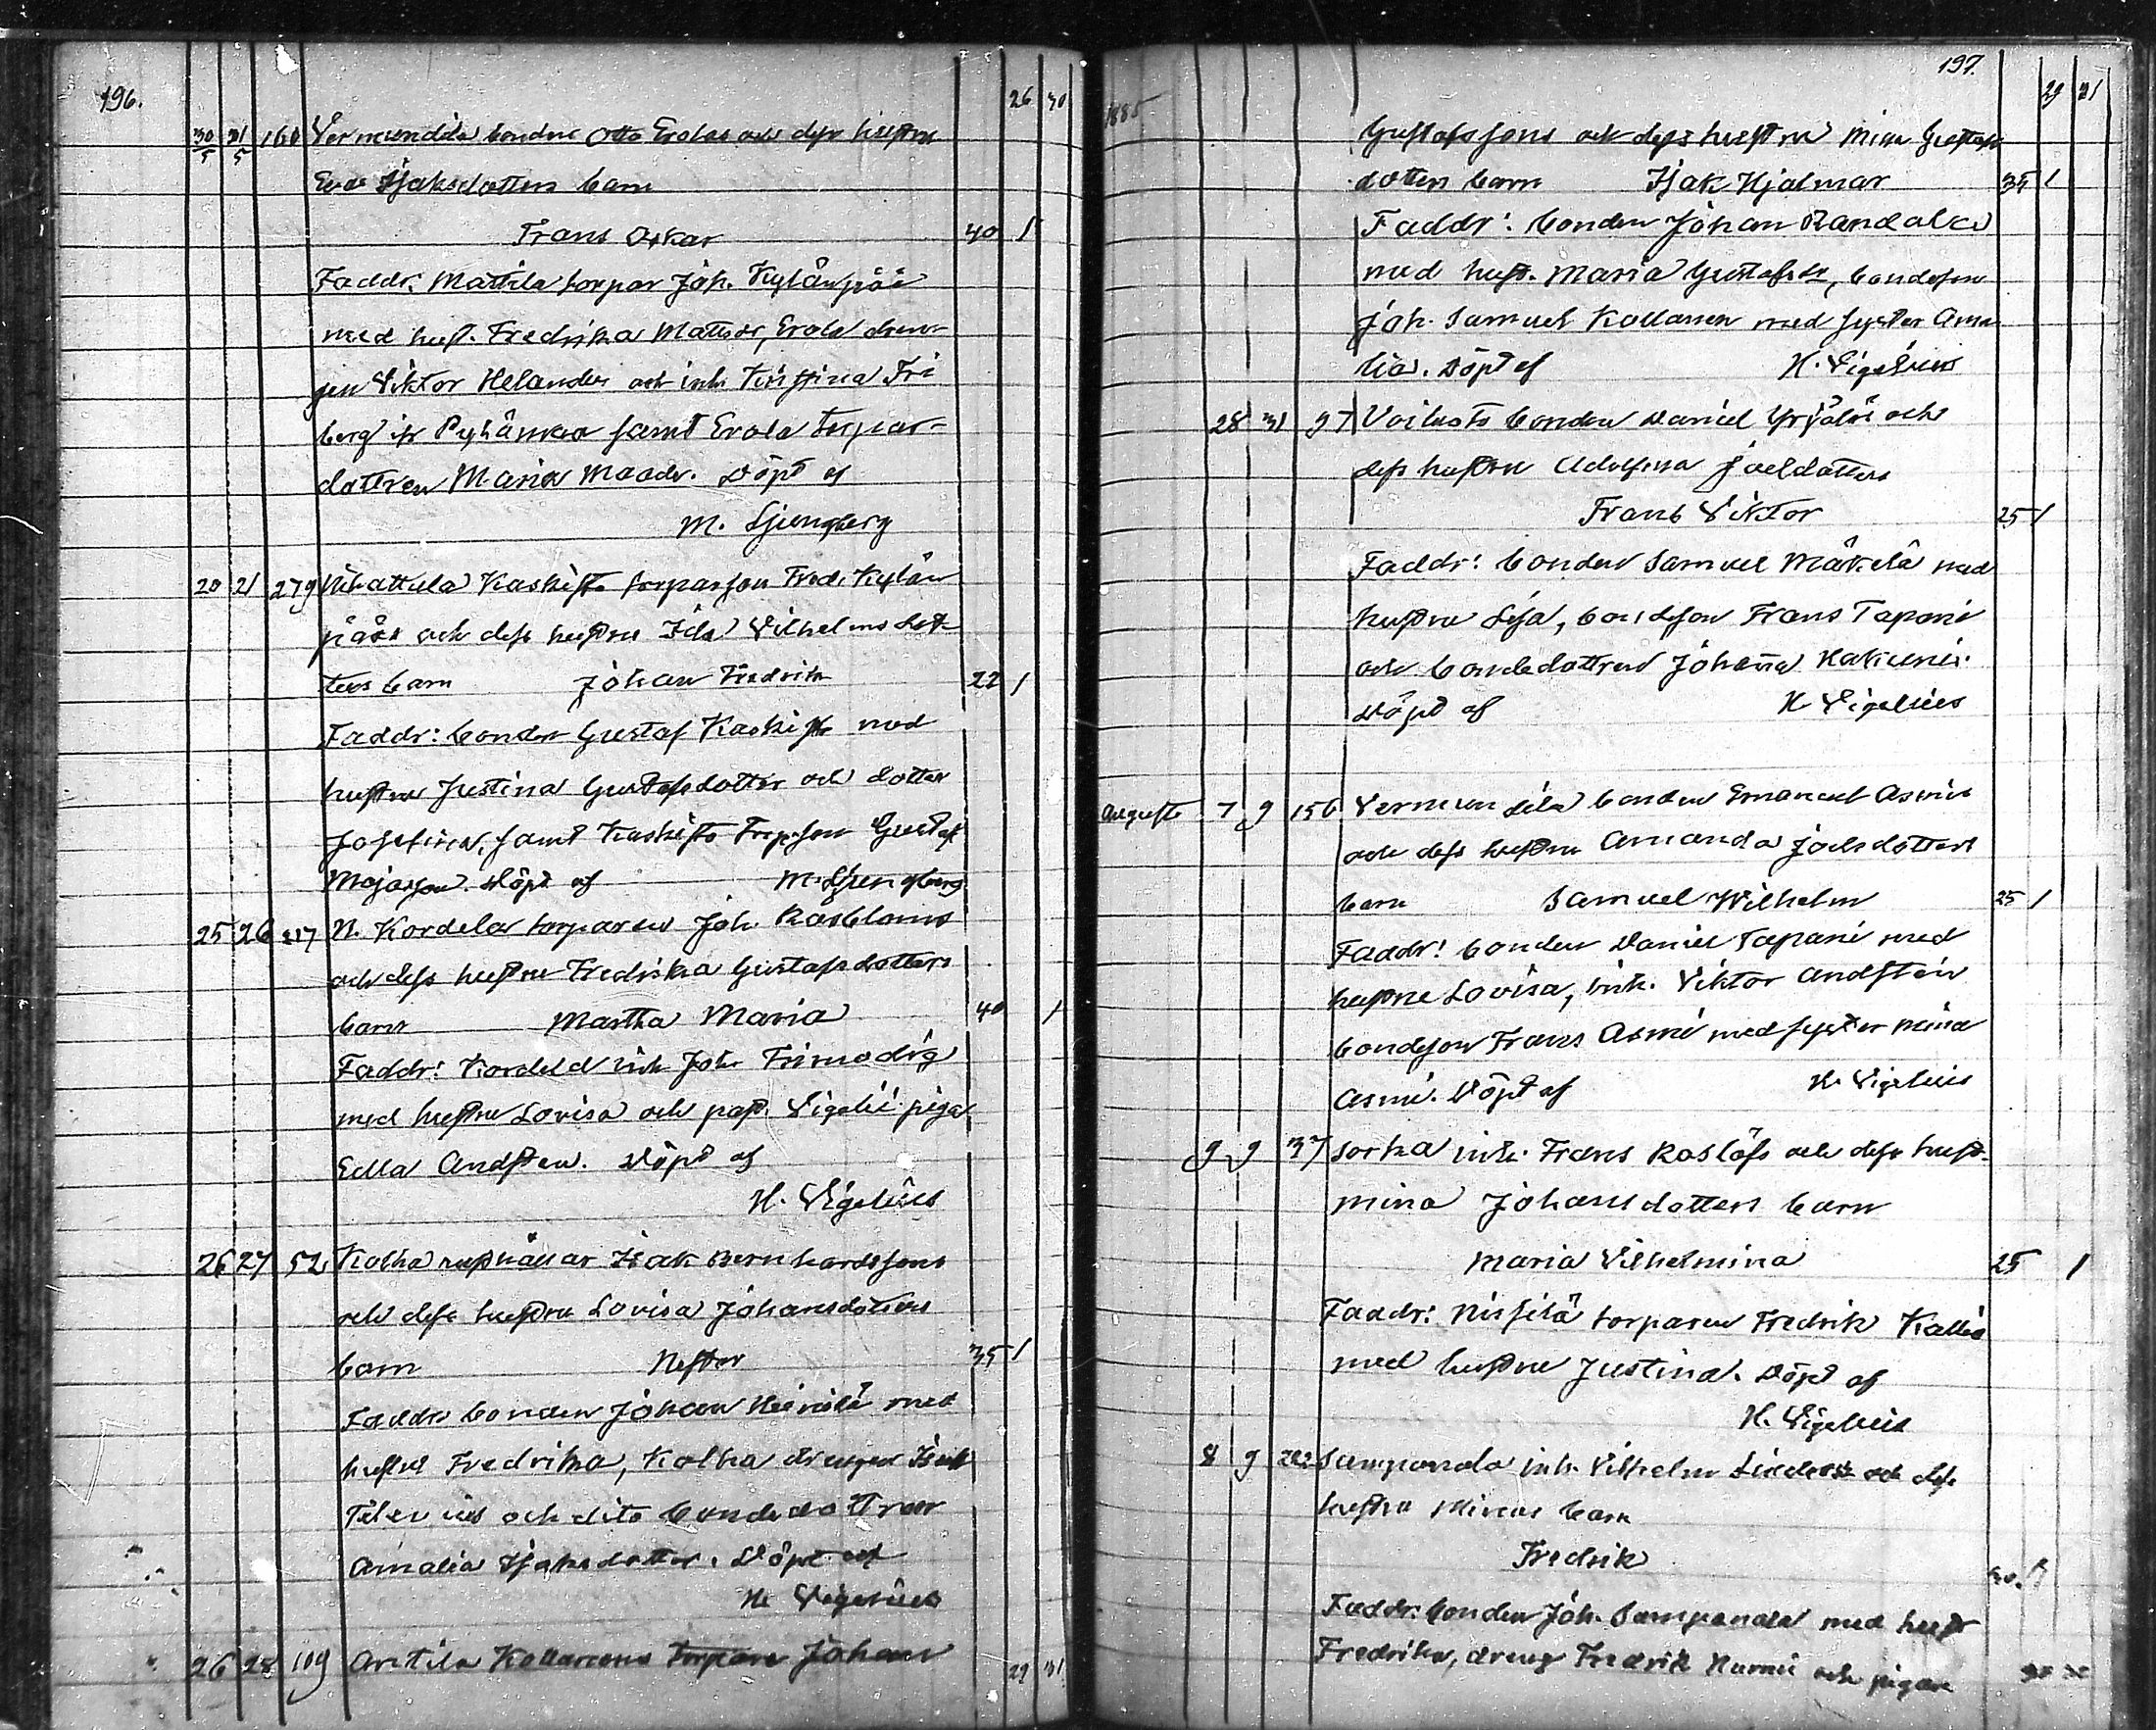 196.
26 30
30/5 31/5 160 Vermundila bonden Otto Erolas och dess hustru
Eva Isaksdotters barn
Frans Oskar 40 1
Faddr: Mattila torpar Joh. Kylänpää
med hust. Fredrika Mattsdr, Erola dren-
gen Viktor Helander och inh. Kristina Fri
berg ifr samt Erola torpar-
dottren Maria Maadr. Döpt af
M. Ljungberg
20 21 279 Kaskisto torparson Fred. Kylän
pääs och dess hustru Ida Vilhelmsdot-
ters barn Johan Fredrik 22 1
Faddr: bonden Gustaf Kaskisto med
hustru Justina Gustafsdotter och dotter
Josefina, samt Kaskisto Torp.son Gustaf
Majasson. Döpt af M. Ljungberg
25 26 217 N. Kordela torparen Joh. Rosbloms
och dess hustru Fredrika Gustafsdotters
barn Martha Maria 40 1
Faddr: Kordela inh Joh. Frimodig
med hustru Lovisa och past. Vigelii piga
Edla Andsten. Döpt af
H. Vigelius
26 27 52 Kolha Isak Bernhardssons
och dess hustru Lovisa Johansdotters
barn Nestor 35 1
Faddr: bonden Johan Heinilä med
hustru Fredrika, Kolha drengen Isak
och dito bondedottren
Amalia Isaksdotter. Döpt af
H. Vigelius
26 28 109 Anttila Kollarens torpare Johan
29 31
197.
29 31
1885
Gustafssons och dess hustru Mina Gustafs
dotters barn Isak Hjalmar 35 1
Faddr: bonden Johan Randala
med hust. Maria Gustafsdr, bondeson
Joh. Samuel Kollanen med syster Ama
lia. Döpt af H. Vigelius
28 31 97 Voitusto bonden Daniel Yrjälä och
dess hustru Adolfina Joelsdotters
Frans Viktor 25 1
Faddr: bonden Samuel Mäkelä med
hustru Lisa, bondeson Frans Tapani
och bondedottren Johanna
Döpt af H Vigelius
Augusti 7 9 156 Vermundila bonden Emanuel Asmis
och dess hustru Amanda Joelsdotters
barn Samuel Wilhelm 25 1
Faddr: bonden Daniel Tapani med
hustru Lovisa, inh. Viktor Andstén
bondeson Frans Asmi med syster Mina
Asmi. Döpt af H. Vigelius
9 9 37 Sorha inh. Frans Roslöfs och dess hust.
Mina Johansdotters barn
Maria Vilhelmina 25 1
Faddr: Nissilä torparen Fredrik Kallio
med hustru Justina. Döpt af
H. Vigelius
8 9 282 Sampanala inh. Vilhelm och dess
hustru Minas barn
Fredrik
Faddr: bonden Joh. Sampanala med hustr
Fredrika, dreng Fredrik Nurmi och pigan